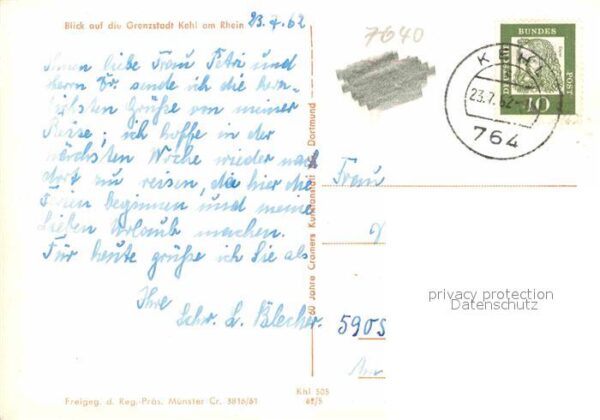 Blick auf die Grenzstadt Kehl am Rhein 23.7.62
Ihnen liebe Frau Petri und
Herrn Dr. sende ich die herz-
lichsten Grüße von meiner
Reise; ich hoffe in der
nächsten Woche wieder nach
dort zu reisen, da hier die
Ferien beginnen und meine
lieben Urlaub machen.
Für heute grüße ich Sie als
Ihre
Schw. L. Blecher.
Freigeg. d. Reg.-Präs. Münster Cr. 3816/61
Khl 505
62/5
60 Jahre Cramers Kunstanstalt Dortmund
7640
DEUTSCHE
BUNDES
POST
10
KEHL
23.7.62
764
Frau
590
privacy protection
Datenschutz